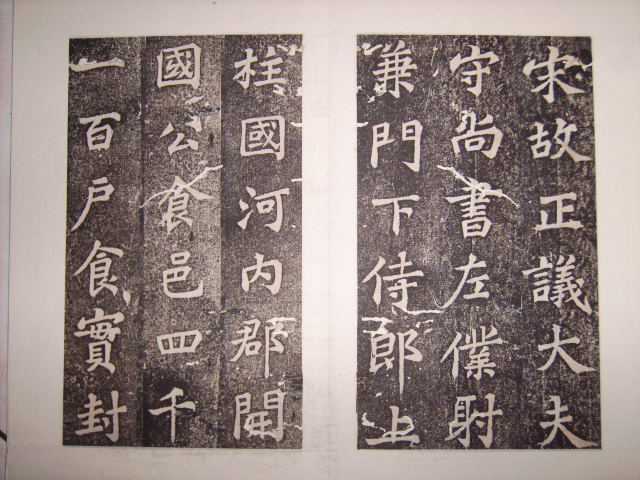 宋故正議大夫
守尚書左僕射
兼門下侍郎上
柱國河内郡開
國公食邑四千
一百户食實封